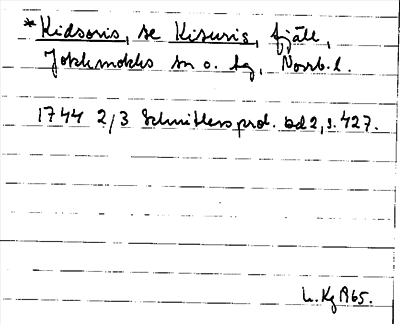 *Kidsoris, se Kisuris, fjäll,
Jokkmokks sn o. hg, Norrb. l.
1744 2/3 Schnitlers prot. bd 2, s. 427.
L. Kg 1965.